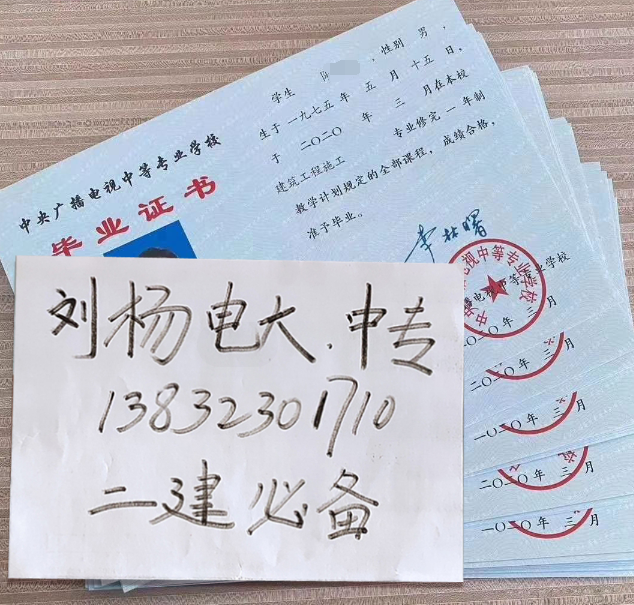 学生 陈 ，性别 男，
生于一九七五年 五 月 十五 日，
于 二〇二〇 年 三 月在本校
建筑工程施工 专业修完 一 年制
教学计划规定的全部课程，成绩合格，
准予毕业。
中央广播电视中等专业学校
毕业证书
李林曙
二〇二〇年 三 月
二〇二〇 年 三 月
二〇二〇 年 三 月
二〇二〇 年 三 月
二〇二〇 年 三 月
刘杨电大.中专
13832301710
二建必备